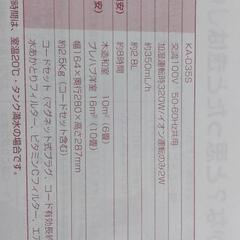 KA-035S
交流100V 50-60Hz共用
加湿運転時320W/イオン運転のみ2W
約350mL/h
約2.8L
約8時間
安) 木造和室 10m²(6畳)
安) プレハブ洋室 16m²(10畳)
幅164×奥行280×高さ287mm
約2.5Kg(コードセット含む)
コードセット(マグネット式プラグ、コード有効長
水あかとりフィルター、ビタミンCフィルター、エア
時間は、室温20℃・タンク満水の場合です。